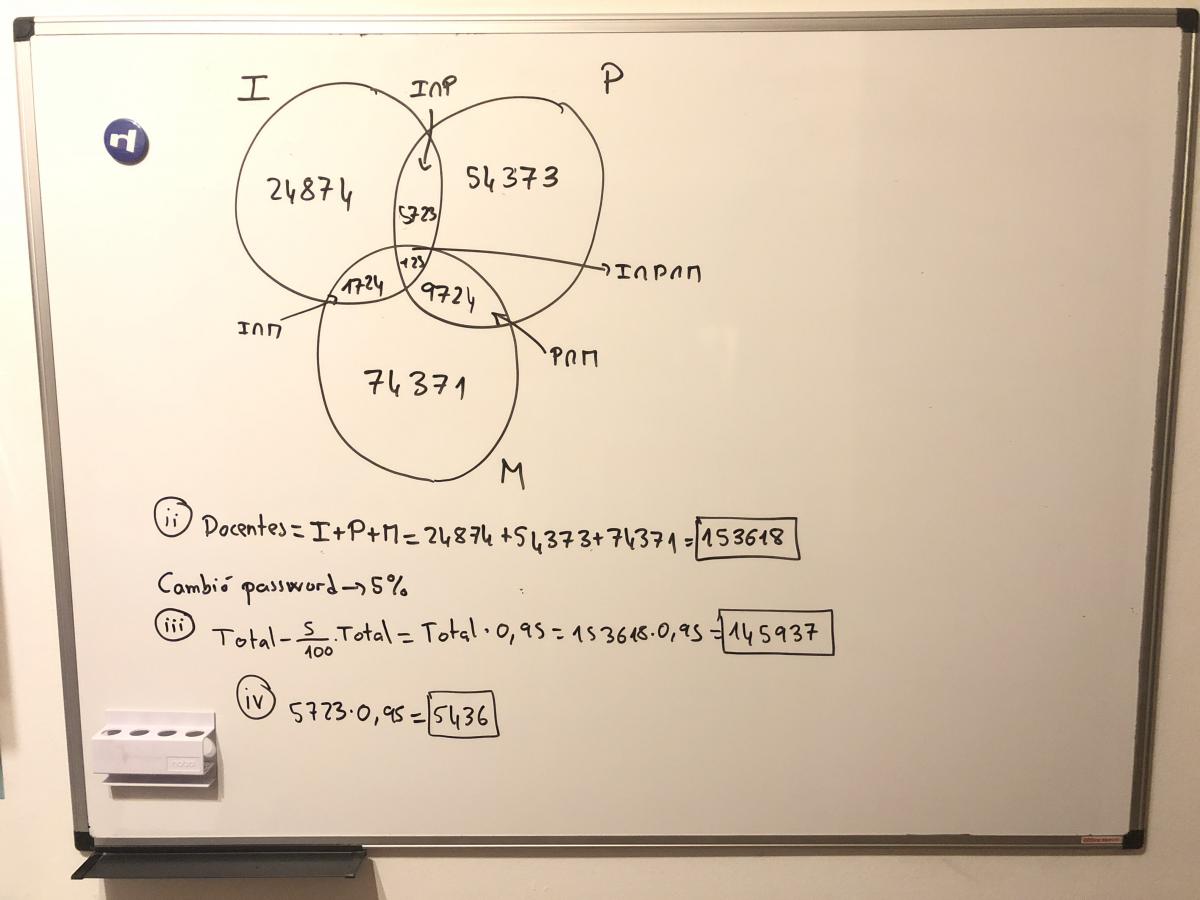 I
I∩P
P
24874
54373
5723
123
1724
9724
I∩P∩M
I∩M
P∩M
74371
M
ii Docentes = I+P+M = 24874+54373+74371 = 153618
Cambió password → 5%
iii Total - 5/100 · Total = Total · 0,95 = 153618 · 0,95 = 145937
iv 5723 · 0,95 = 5436
nobo